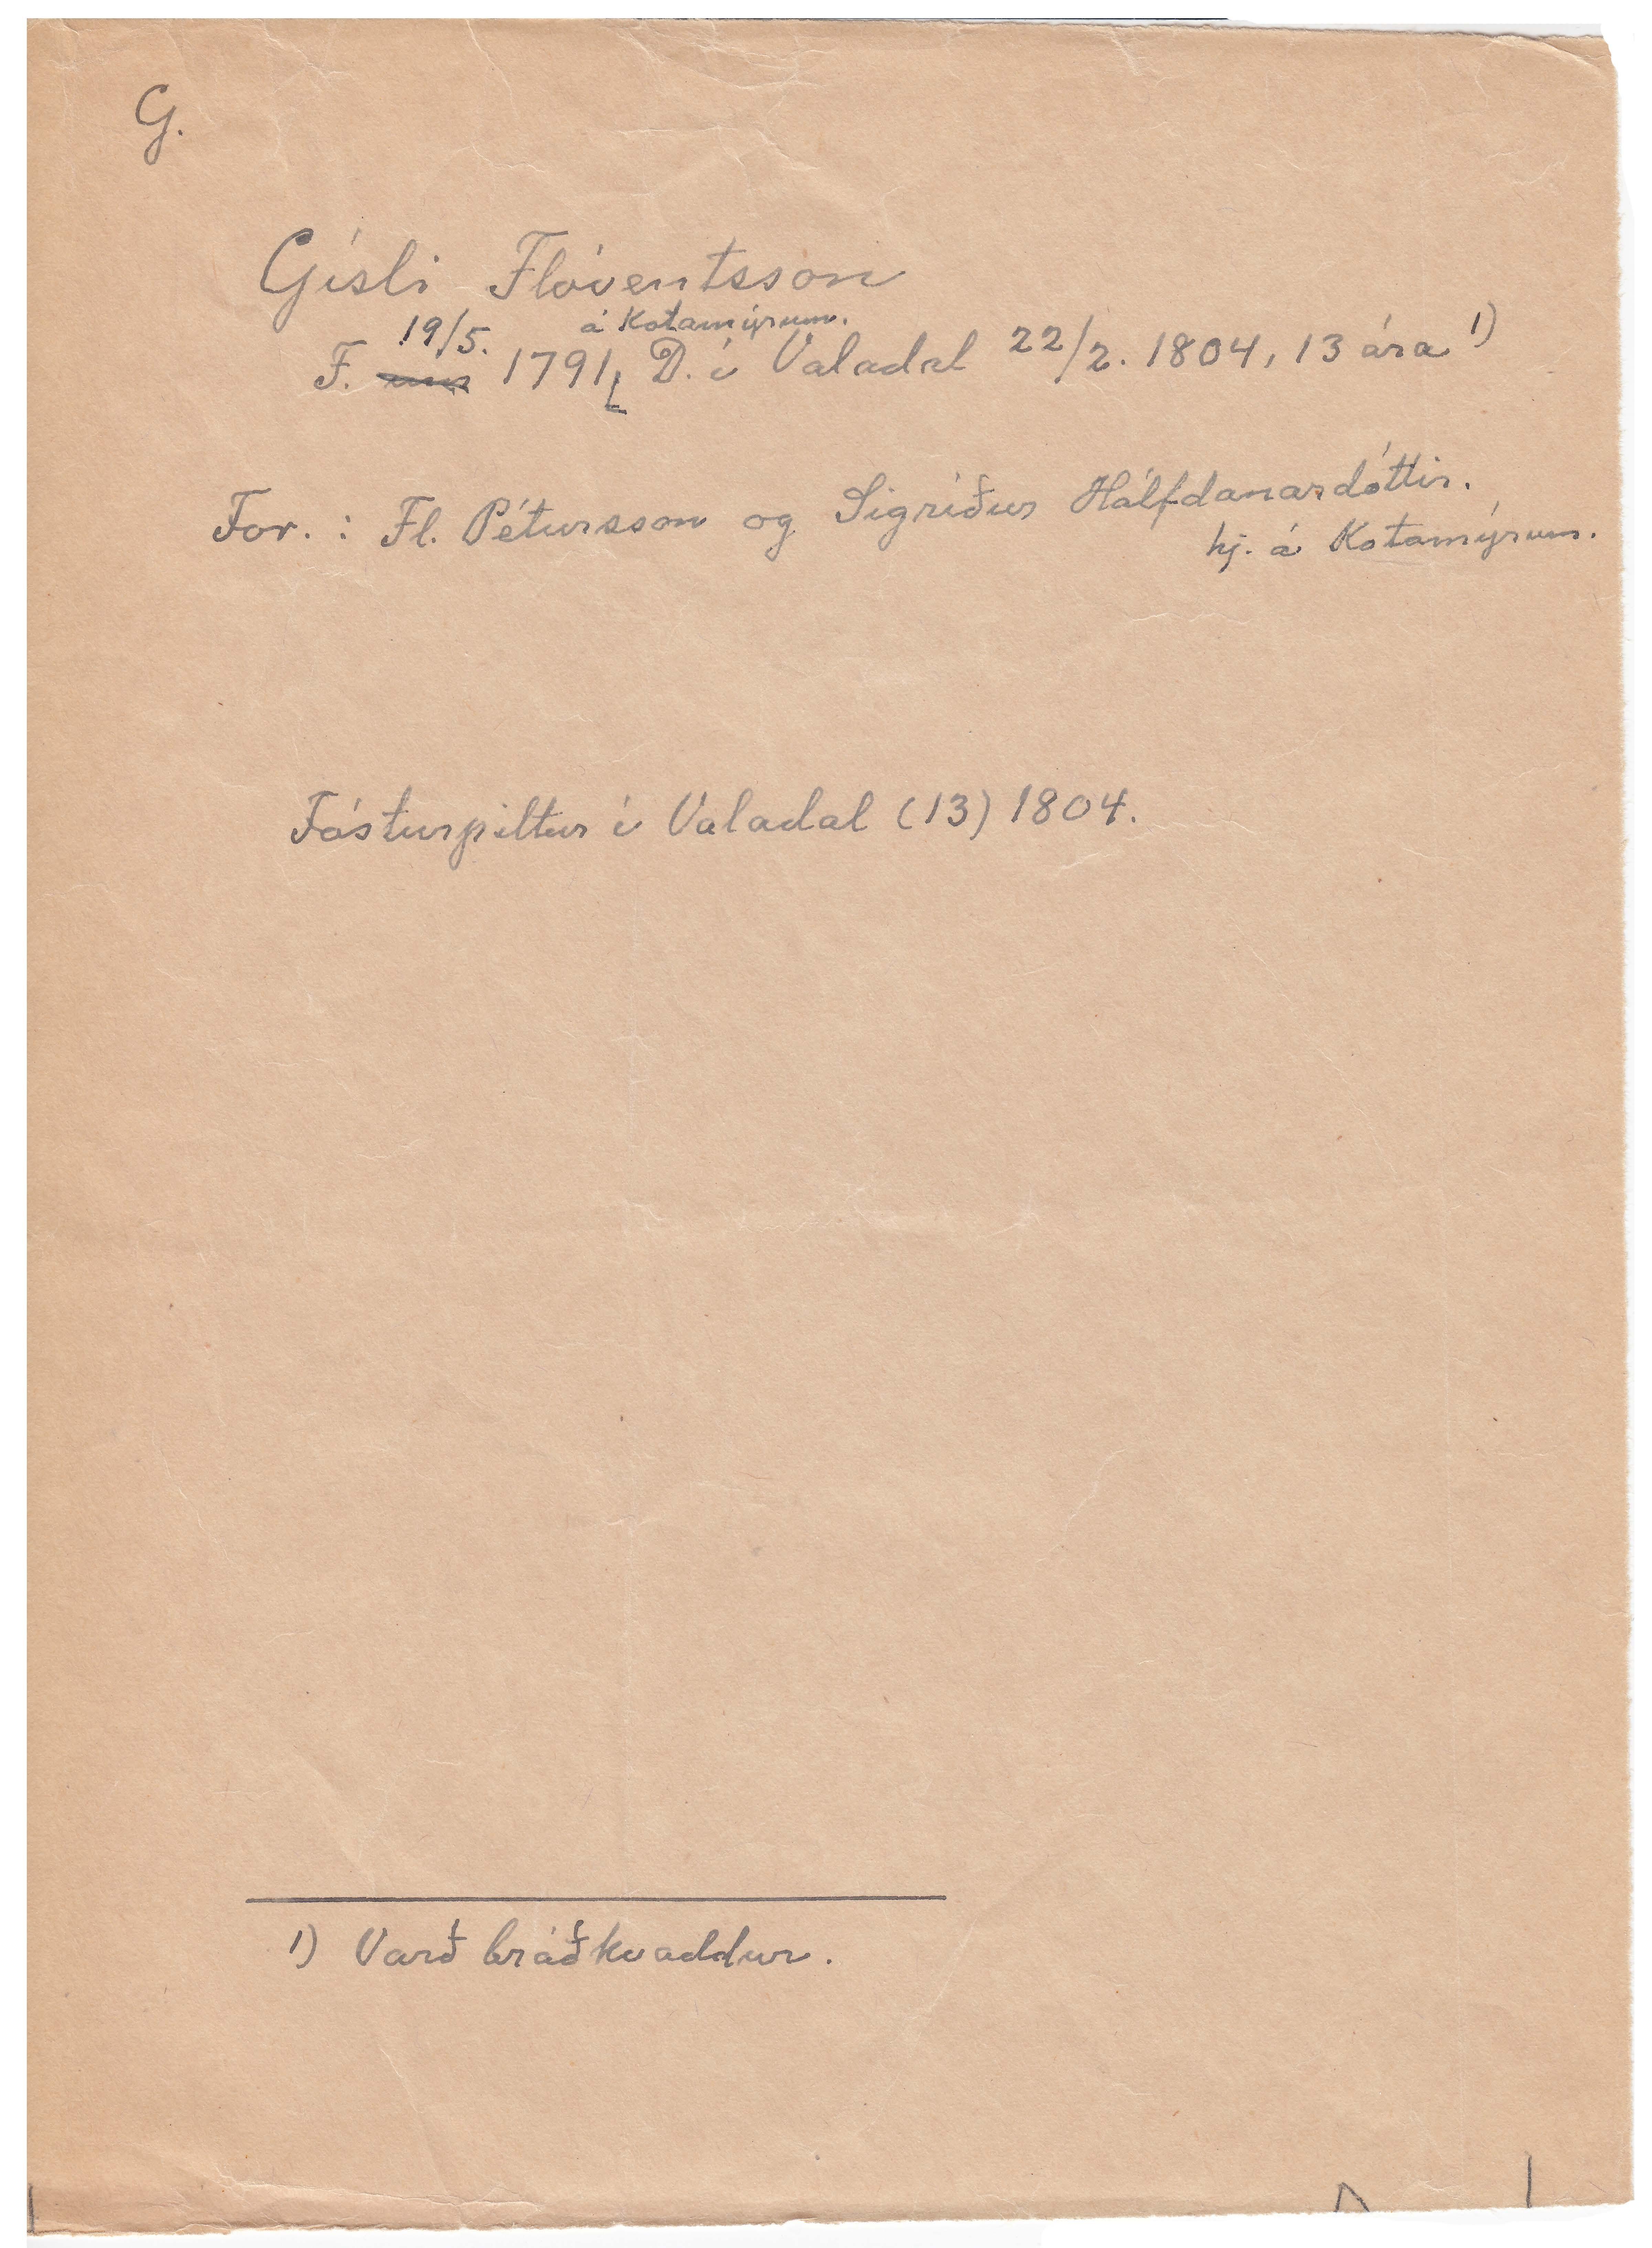 G.
Gísli Flóventsson
19/5. á Kotamýrum.
F. 1791, D. í Valadal 22/2. 1804, 13 ára 1)
For.: Fl. Pétursson og Sigríður Hálfdanardóttir.
hj. á Kotamýrum.
Fósturpiltur í Valadal (13) 1804.
1) Varð bráðkvaddur.